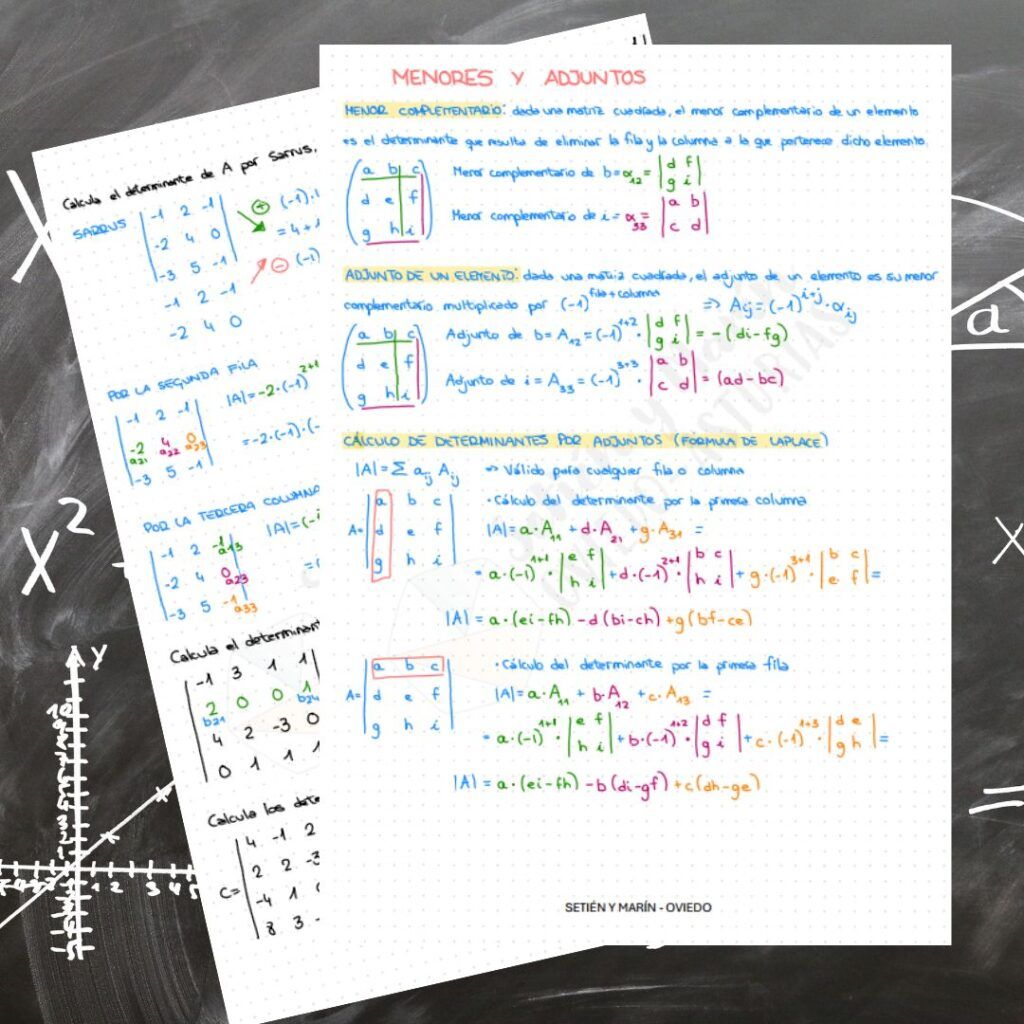 MENORES Y ADJUNTOS
MENOR COMPLEMENTARIO: dada una matriz cuadrada, el menor complementario de un elemento
es el determinante que resulta de eliminar la fila y la columna a la que pertenece dicho elemento.
a b c
d e f
g h i
Menor complementario de b = α₁₂ = |d f|
|g i|
Menor complementario de i = α₃₃ = |a b|
|c d|
ADJUNTO DE UN ELEMENTO: dada una matriz cuadrada, el adjunto de un elemento es su menor
complementario multiplicado por (-1)^fila+columna ⇒ Aij = (-1)^i+j · αij
a b c
d e f
g h i
Adjunto de b = A₁₂ = (-1)^1+2 · |d f| = -(di-fg)
|g i|
Adjunto de i = A₃₃ = (-1)^3+3 · |a b| = (ad-bc)
|c d|
CÁLCULO DE DETERMINANTES POR ADJUNTOS (FORMULA DE LAPLACE)
|A| = Σ aij Aij ⇒ Válido para cualquier fila o columna
A = |a b c|
|d e f|
|g h i|
· Cálculo del determinante por la primera columna
|A| = a·A₁₁ + d·A₂₁ + g·A₃₁ =
= a·(-1)^1+1 · |e f| + d·(-1)^2+1 · |b c| + g·(-1)^3+1 · |b c| =
|h i| |h i| |e f|
|A| = a·(ei-fh) - d(bi-ch) + g(bf-ce)
A = |a b c|
|d e f|
|g h i|
· Cálculo del determinante por la primera fila
|A| = a·A₁₁ + b·A₁₂ + c·A₁₃ =
= a·(-1)^1+1 · |e f| + b·(-1)^1+2 · |d f| + c·(-1)^1+3 · |d e| =
|h i| |g i| |g h|
|A| = a·(ei-fh) - b(di-gf) + c(dh-ge)
SETIÉN Y MARÍN - OVIEDO
Calcula el determinante de A por Sarrus,
SARRUS
|-1 2 -1|
|-2 4 0|
|-3 5 -1|
-1 2 -1
-2 4 0
⊕ (-1)·
= 4 +
⊖ (-1)
POR LA SEGUNDA FILA
|-1 2 -1|
|-2 4 0|
a₂₁ a₂₂ a₂₃
|-3 5 -1|
|A| = -2·(-1)^2+1
= -2·(-1)·(-
POR LA TERCERA COLUMNA
|-1 2 -1| a₁₃
|-2 4 0| a₂₃
|-3 5 -1| a₃₃
|A| = (-
Calcula el determinant
|-1 3 1 1|
|2 0 0 1|
b₂₁ b₂₄
|4 2 -3 0|
|0 1 1 1|
Calcula los dete
C = |4 -1 2
|2 2 -3
|-4 1
|8 3 -
x²
y
a
1 2 3 4 5